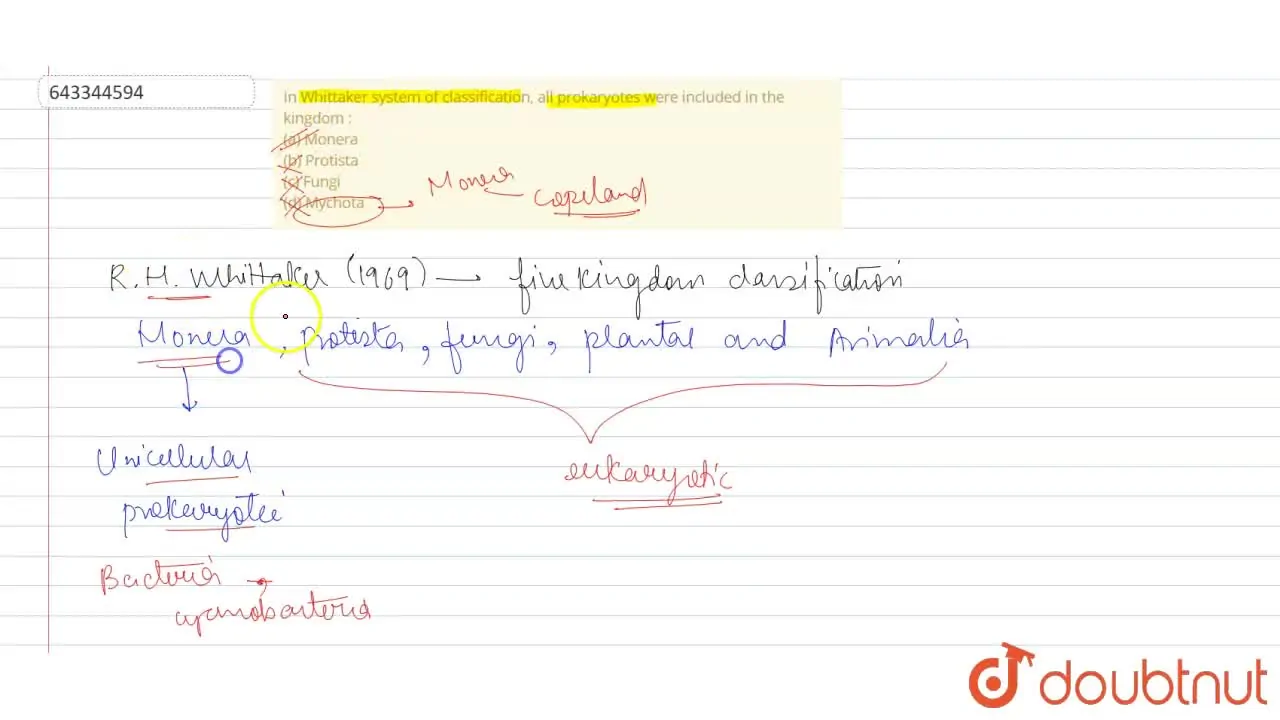 643344594
In Whittaker system of classification, all prokaryotes were included in the
kingdom :
(a) Monera
(b) Protista
(c) Fungi
(d) Mychota
Monera
Copeland
R. H. Whittaker (1969) → five kingdom classification
Monera, protista, fungi, plantae and Animalia
Unicellular
eukaryotic
prokaryotic
Bacteria,
cyanobacteria
doubtnut